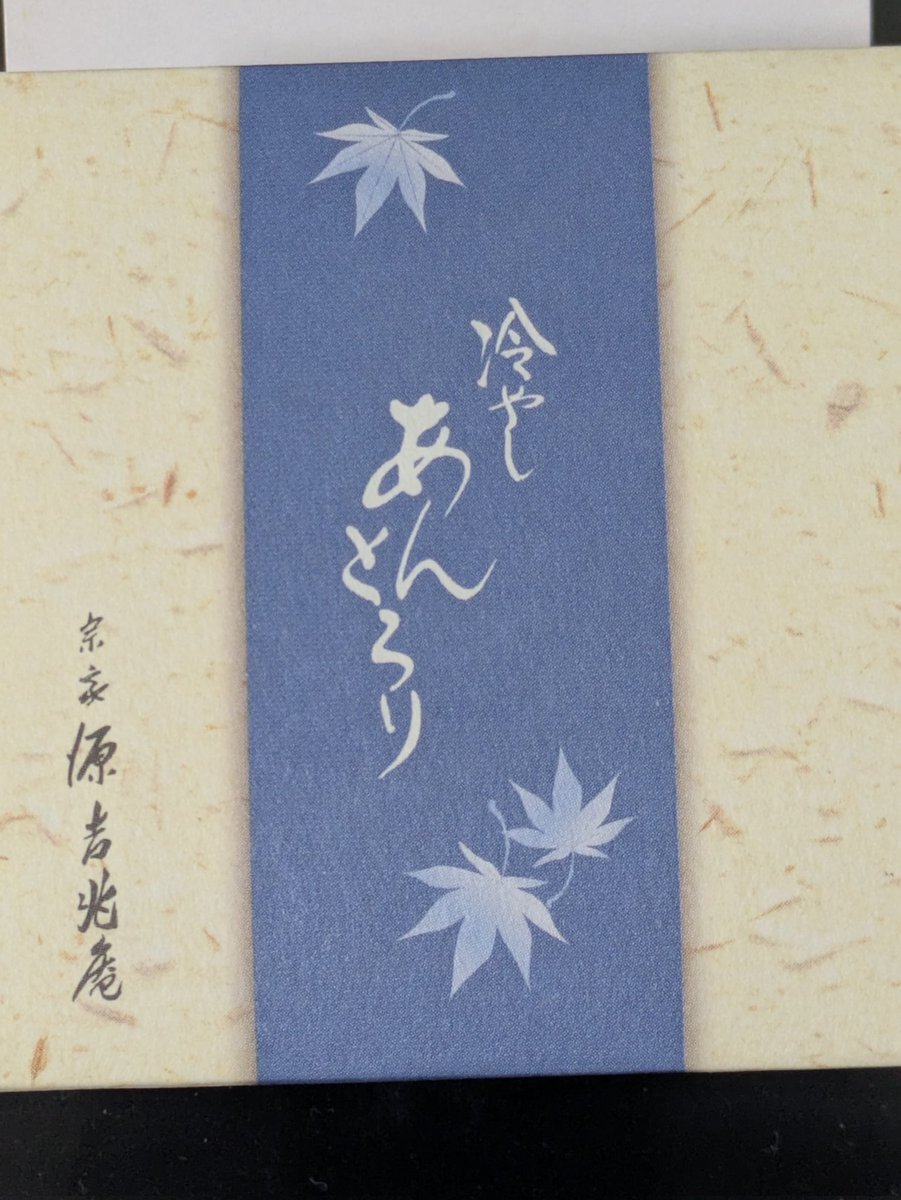 冷やし
あん
とろり
宗家 源吉兆庵